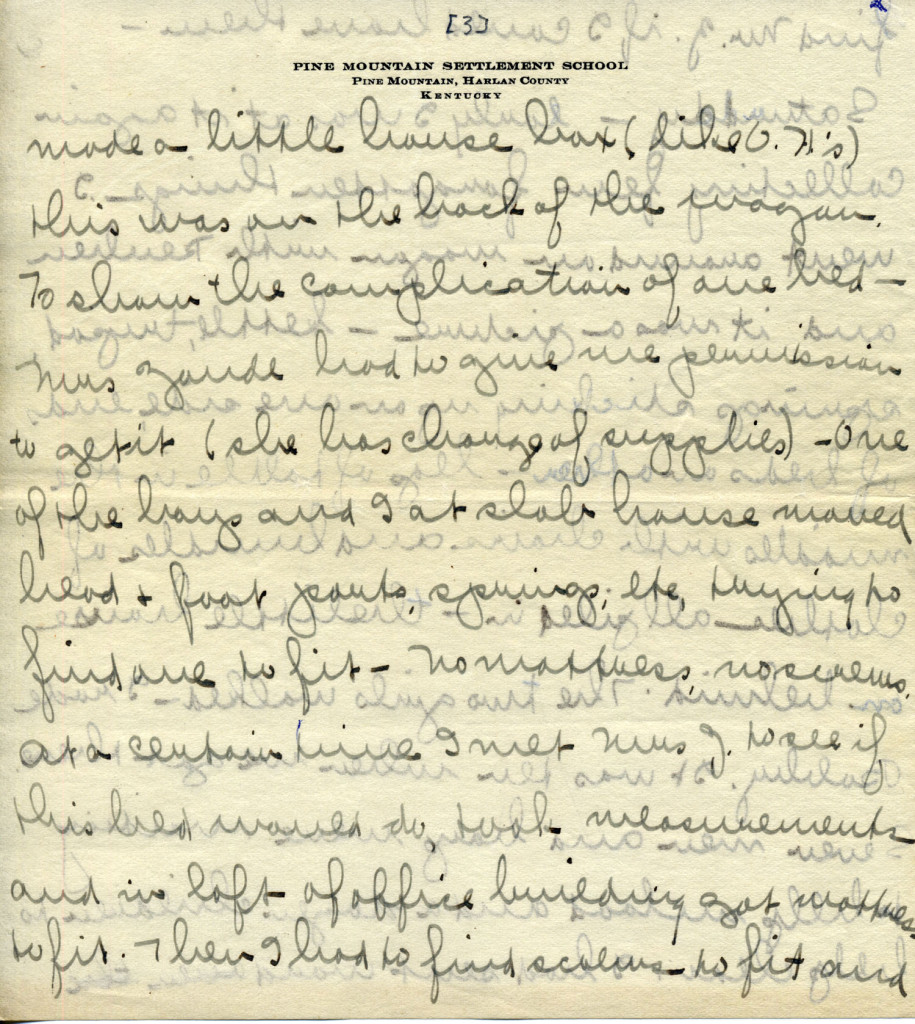 [3]
PINE MOUNTAIN SETTLEMENT SCHOOL
PINE MOUNTAIN, HARLAN COUNTY
KENTUCKY
made a little house box (like O. H's)
this was on the back of the wagon.
To show the complication of one bed –
Mrs Zande had to give me permission
to get it (she has charge of supplies) – One
of the boys and I at slab house moved
head + foot parts, springs, etc, trying to
find one to fit – No mattress, no screws,
at a certain time I met Mrs Z. to see if
this bed would do, took measurements
and in loft of office building got mattress
to fit. Then I had to find screws to fit and